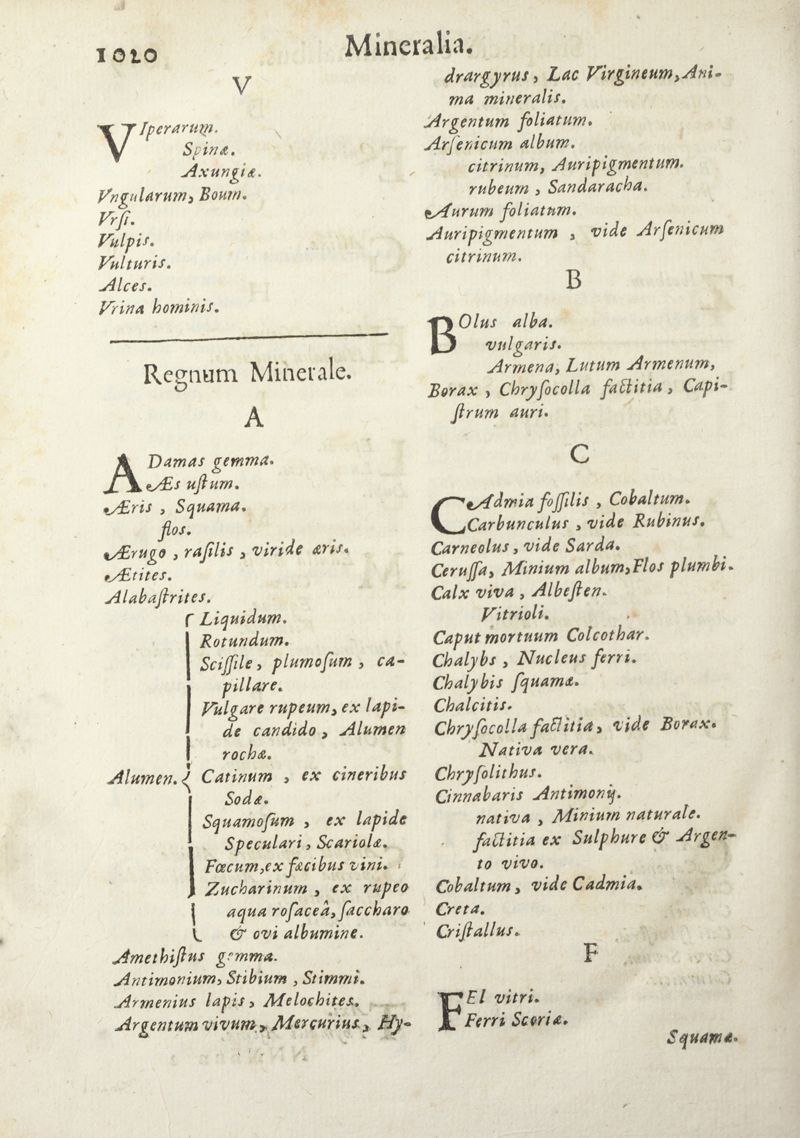 1020
Mineralia.
V
VIperarum.
Spinæ.
Axungiæ.
Vngularum, Boum.
Vrſi.
Vulpis.
Vulturis.
Alces.
Vrina hominis.
Regnum Minerale.
A
ADamas gemma.
Æs uſtum.
Æris , Squama.
flos.
Ærugo , raſilis , viride æris.
Ætites.
Alabaſtrites.
Liquidum.
Rotundum.
Sciſſile, plumoſum , ca-
pillare.
Vulgare rupeum, ex lapi-
de candido , Alumen
rochæ.
Alumen. { Catinum , ex cineribus
Sodæ.
Squamoſum , ex lapide
Speculari, Scariolæ.
Fœcum, ex fæcibus vini.
Zucharinum , ex rupeo
aqua roſaceâ, ſaccharo
& ovi albumine.
Amethiſtus gemma.
Antimonium, Stibium , Stimmi.
Armenius lapis, Melochites.
Argentum vivum, Mercurius, Hy-
drargyrus, Lac Virgineum, Ani-
ma mineralis.
Argentum foliatum.
Arſenicum album.
citrinum, Auripigmentum.
rubeum , Sandaracha.
Aurum foliatum.
Auripigmentum , vide Arſenicum
citrinum.
B
BOlus alba.
vulgaris.
Armena, Lutum Armenum,
Borax , Chryſocolla factitia, Capi-
ſtrum auri.
C
CAdmia foſſilis , Cobaltum.
Carbunculus , vide Rubinus.
Carneolus, vide Sarda.
Ceruſſa, Minium album, Flos plumbi.
Calx viva , Albeſten.
Vitrioli.
Caput mortuum Colcothar.
Chalybs , Nucleus ferri.
Chalybis ſquamæ.
Chalcitis.
Chryſocolla factitia, vide Borax.
Nativa vera.
Chryſolithus.
Cinnabaris Antimonij.
nativa , Minium naturale.
factitia ex Sulphure & Argen-
to vivo.
Cobaltum, vide Cadmia.
Creta.
Criſtallus.
F
FEl vitri.
Ferri Scoriæ.
Squamæ.